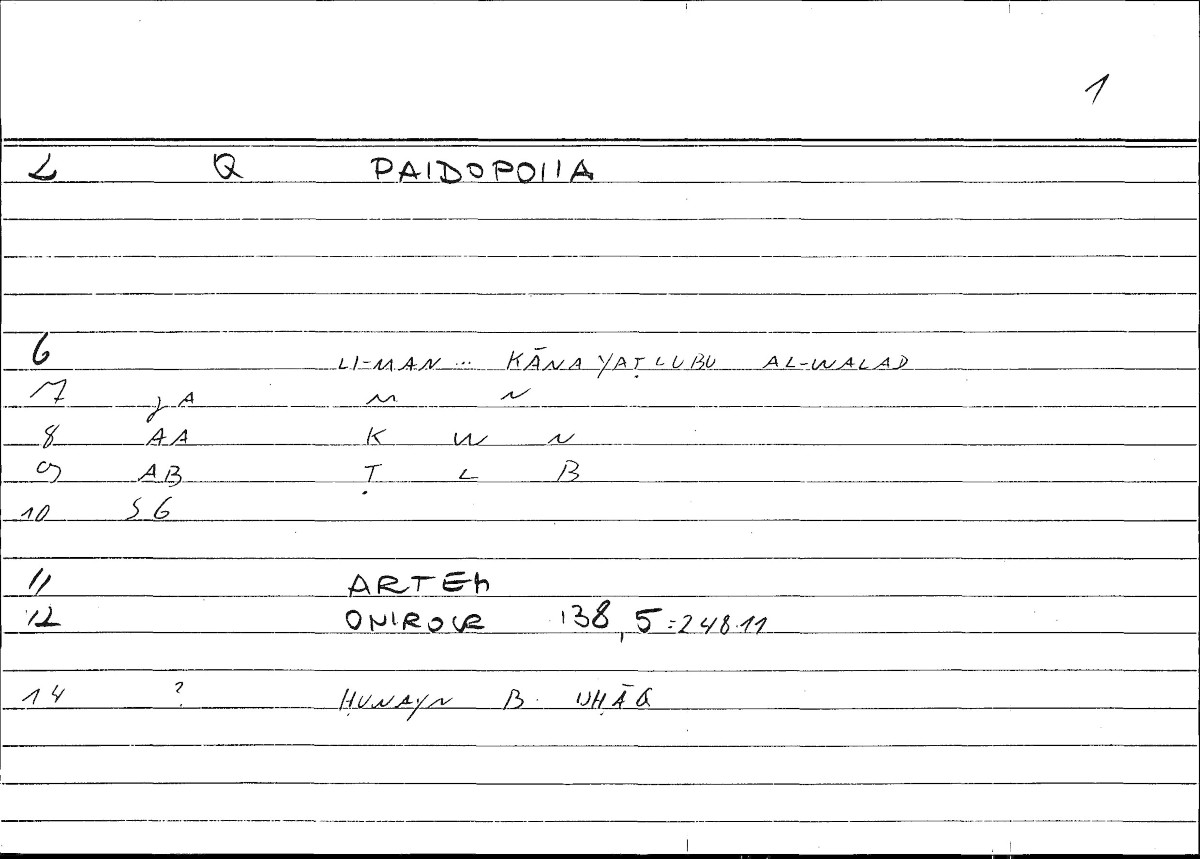 1
2 Q PAIDOPOIIA
6 LI-MAN... KĀNA YAṬLUBU AL-WALAD
7 JA M N
8 AA K W N
9 AB Ṭ L B
10 SG
11 ARTEM
12 ONIROCR 138,5=248.11
14 ? ḤUNAYN B. ISḤĀQ